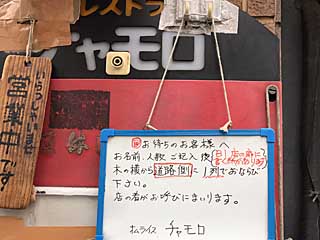 レストラ
チャモロ
いらっしゃいませ
営業中です
お待ちのお客様へ
お名前、人数ご記入後
木の横から道路側に1列でおならび
下さい。
店の者がお呼びにまいります。
オムライス チャモロ